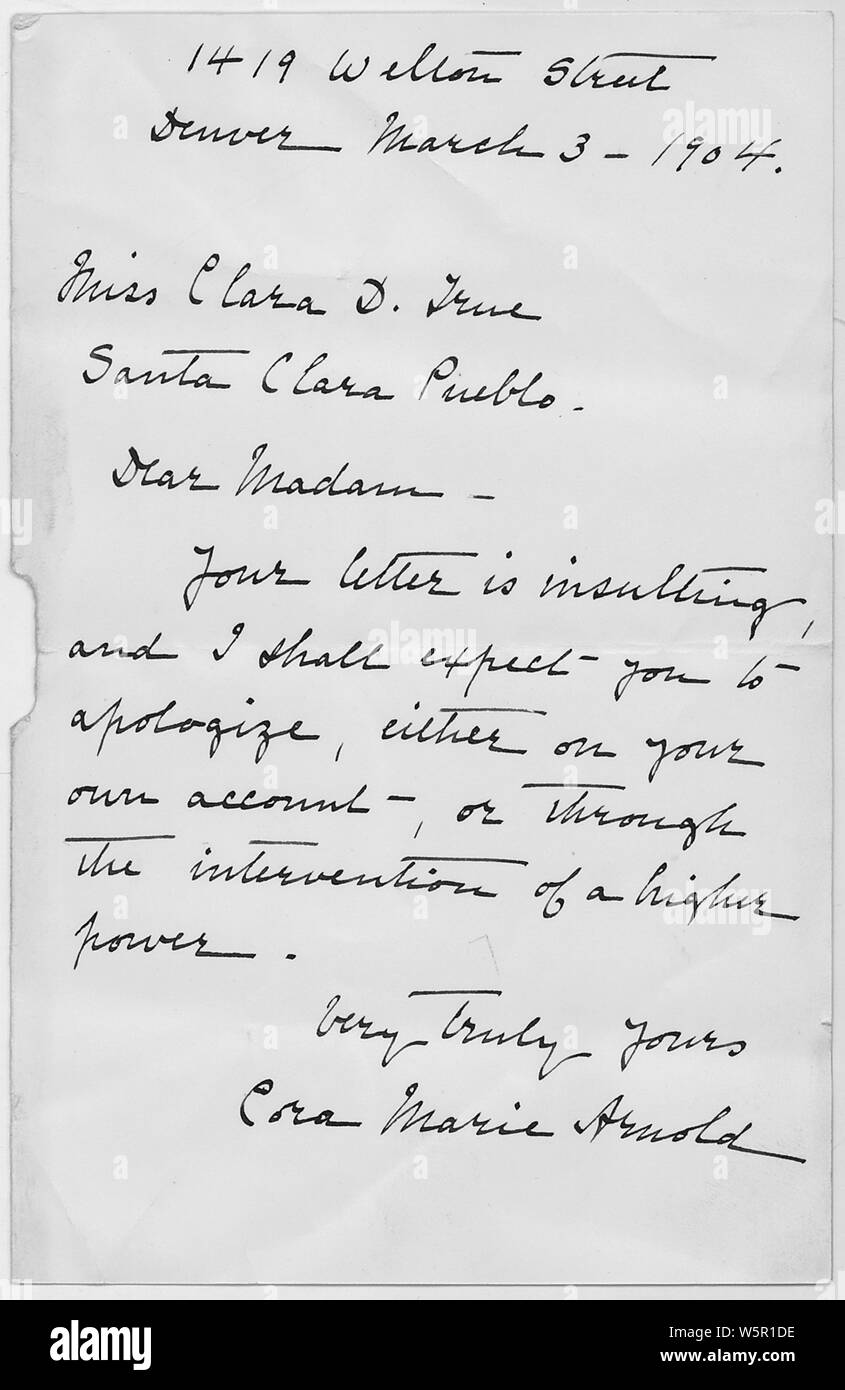 1419 Welton Street
Denver March 3 - 1904.
Miss Clara D. True
Santa Clara Pueblo -
Dear Madam -
Your letter is insulting,
and I shall expect you to
apologize, either on your
own account -, or through
the intervention of a higher
power.
Very truly yours
Cora Marie Arnold
alamy
alamy
alamy
alamy
Image ID: W5R1DE
www.alamy.com